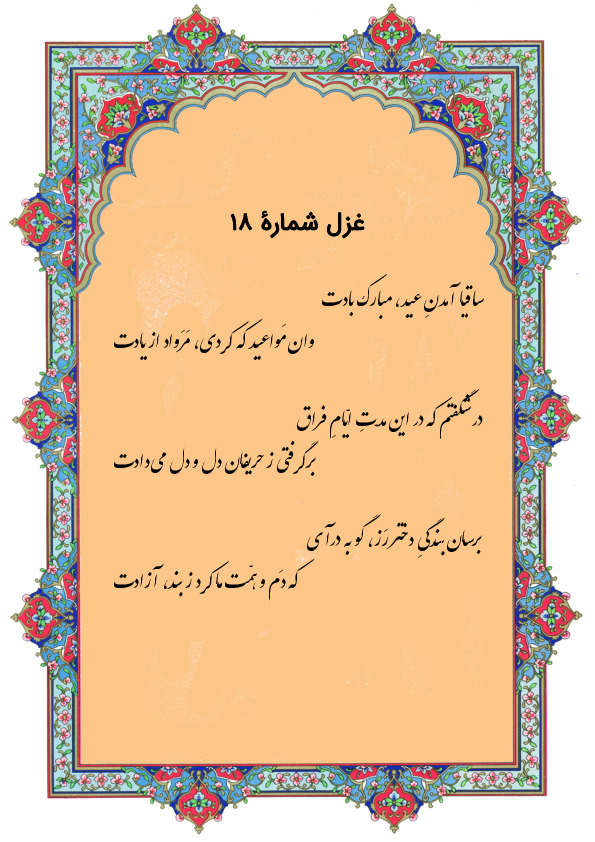 غزل شمارهٔ ۱۸
ساقیا آمدنِ عید، مبارک بادت
وان مَواعید که کردی، مَرَواد از یادت
در شگفتم که در این مدتِ ایّامِ فراق
برگرفتی ز حریفان دل و دل می‌دادت
برسان بندگیِ دختر رَز، گو به درآی
که دَم و همّت ما کرد ز بند، آزادت